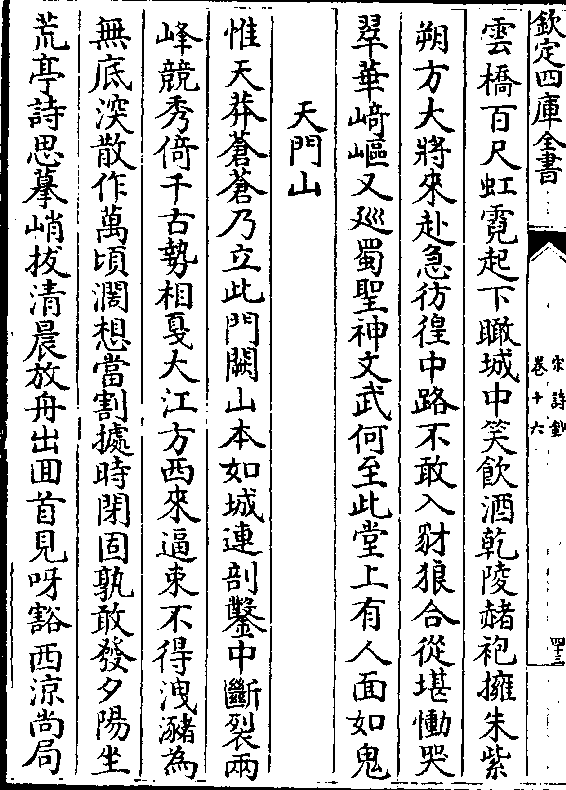 欽定四庫全書
宋詩鈔
卷十六
四十三
雲橋百尺虹霓起下瞰城中笑飲酒乾陵赭袍擁朱紫
朔方大將來赴急彷徨中路不敢入豺狼合從堪慟哭
翠華﨑嶇又廵蜀聖神文武何至此堂上有人面如鬼
天門山
惟天莽蒼蒼乃立此門闕山本如城連剖鑿中斷裂兩
峰競秀倚千古勢相戛大江方西來逼束不得洩瀦為
無底深散作萬頃濶想當割據時閉固孰敢發夕陽坐
荒亭詩思摹峭拔清晨放舟出囬首見呀豁西涼尚局